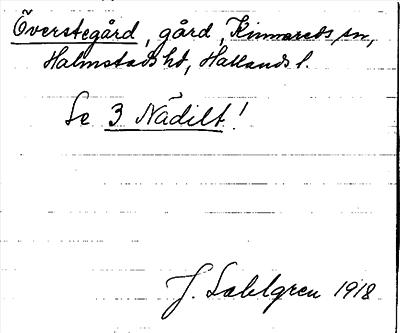 Överstegård, gård, Kinnareds sn,
Halmstads hd, Hallands l.
Se 3 Nädilt!
J. Sahlgren 1918